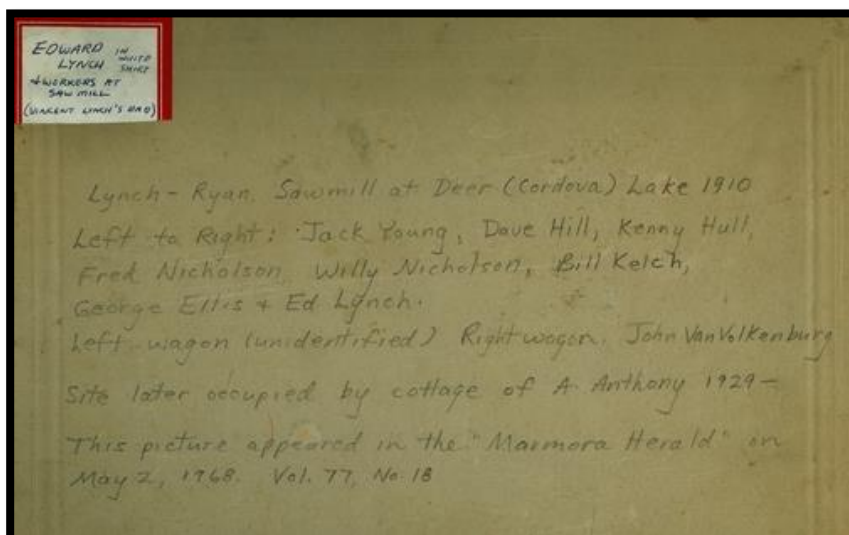 EDWARD IN
LYNCH WHITE
SHIRT
+ WORKERS AT
SAW MILL
(VINCENT LYNCH'S DAD)
Lynch - Ryan. Sawmill at Deer (Cordova) Lake 1910
Left to Right: Jack Young, Dave Hill, Kenny Hull,
Fred Nicholson, Willy Nicholson, Bill Kelch,
George Ellis + Ed Lynch.
Left wagon (unidentified) Right wagon. John VanVolkenburg
Site later occupied by cottage of A. Anthony 1929 -
This picture appeared in the "Marmora Herald" on
May 2, 1968. Vol. 77, No 18